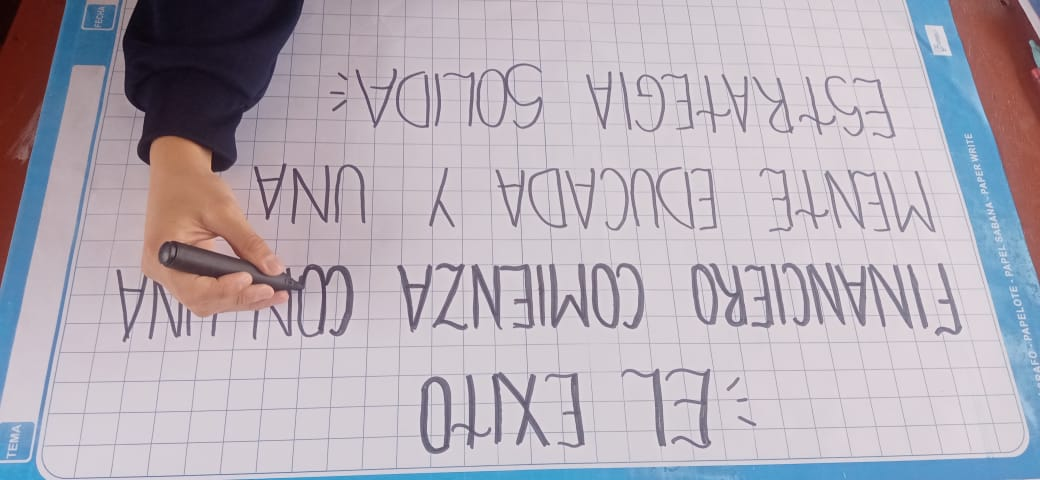 EL EXITO
FINANCIERO COMIENZA CON UNA
MENTE EDUCADA Y UNA
ESTRATEGIA SOLIDA
TEMA
FECHA
PAPELOTE - PAPEL SABANA - PAPER WRITE